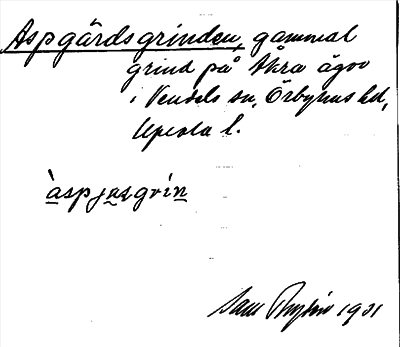 Aspgårdsgrinden, gammal
grind på Åkra ägor
i Vendels sn, Örbyhus hd,
Upsala l.
àspjɑsgrín
Sam 1931